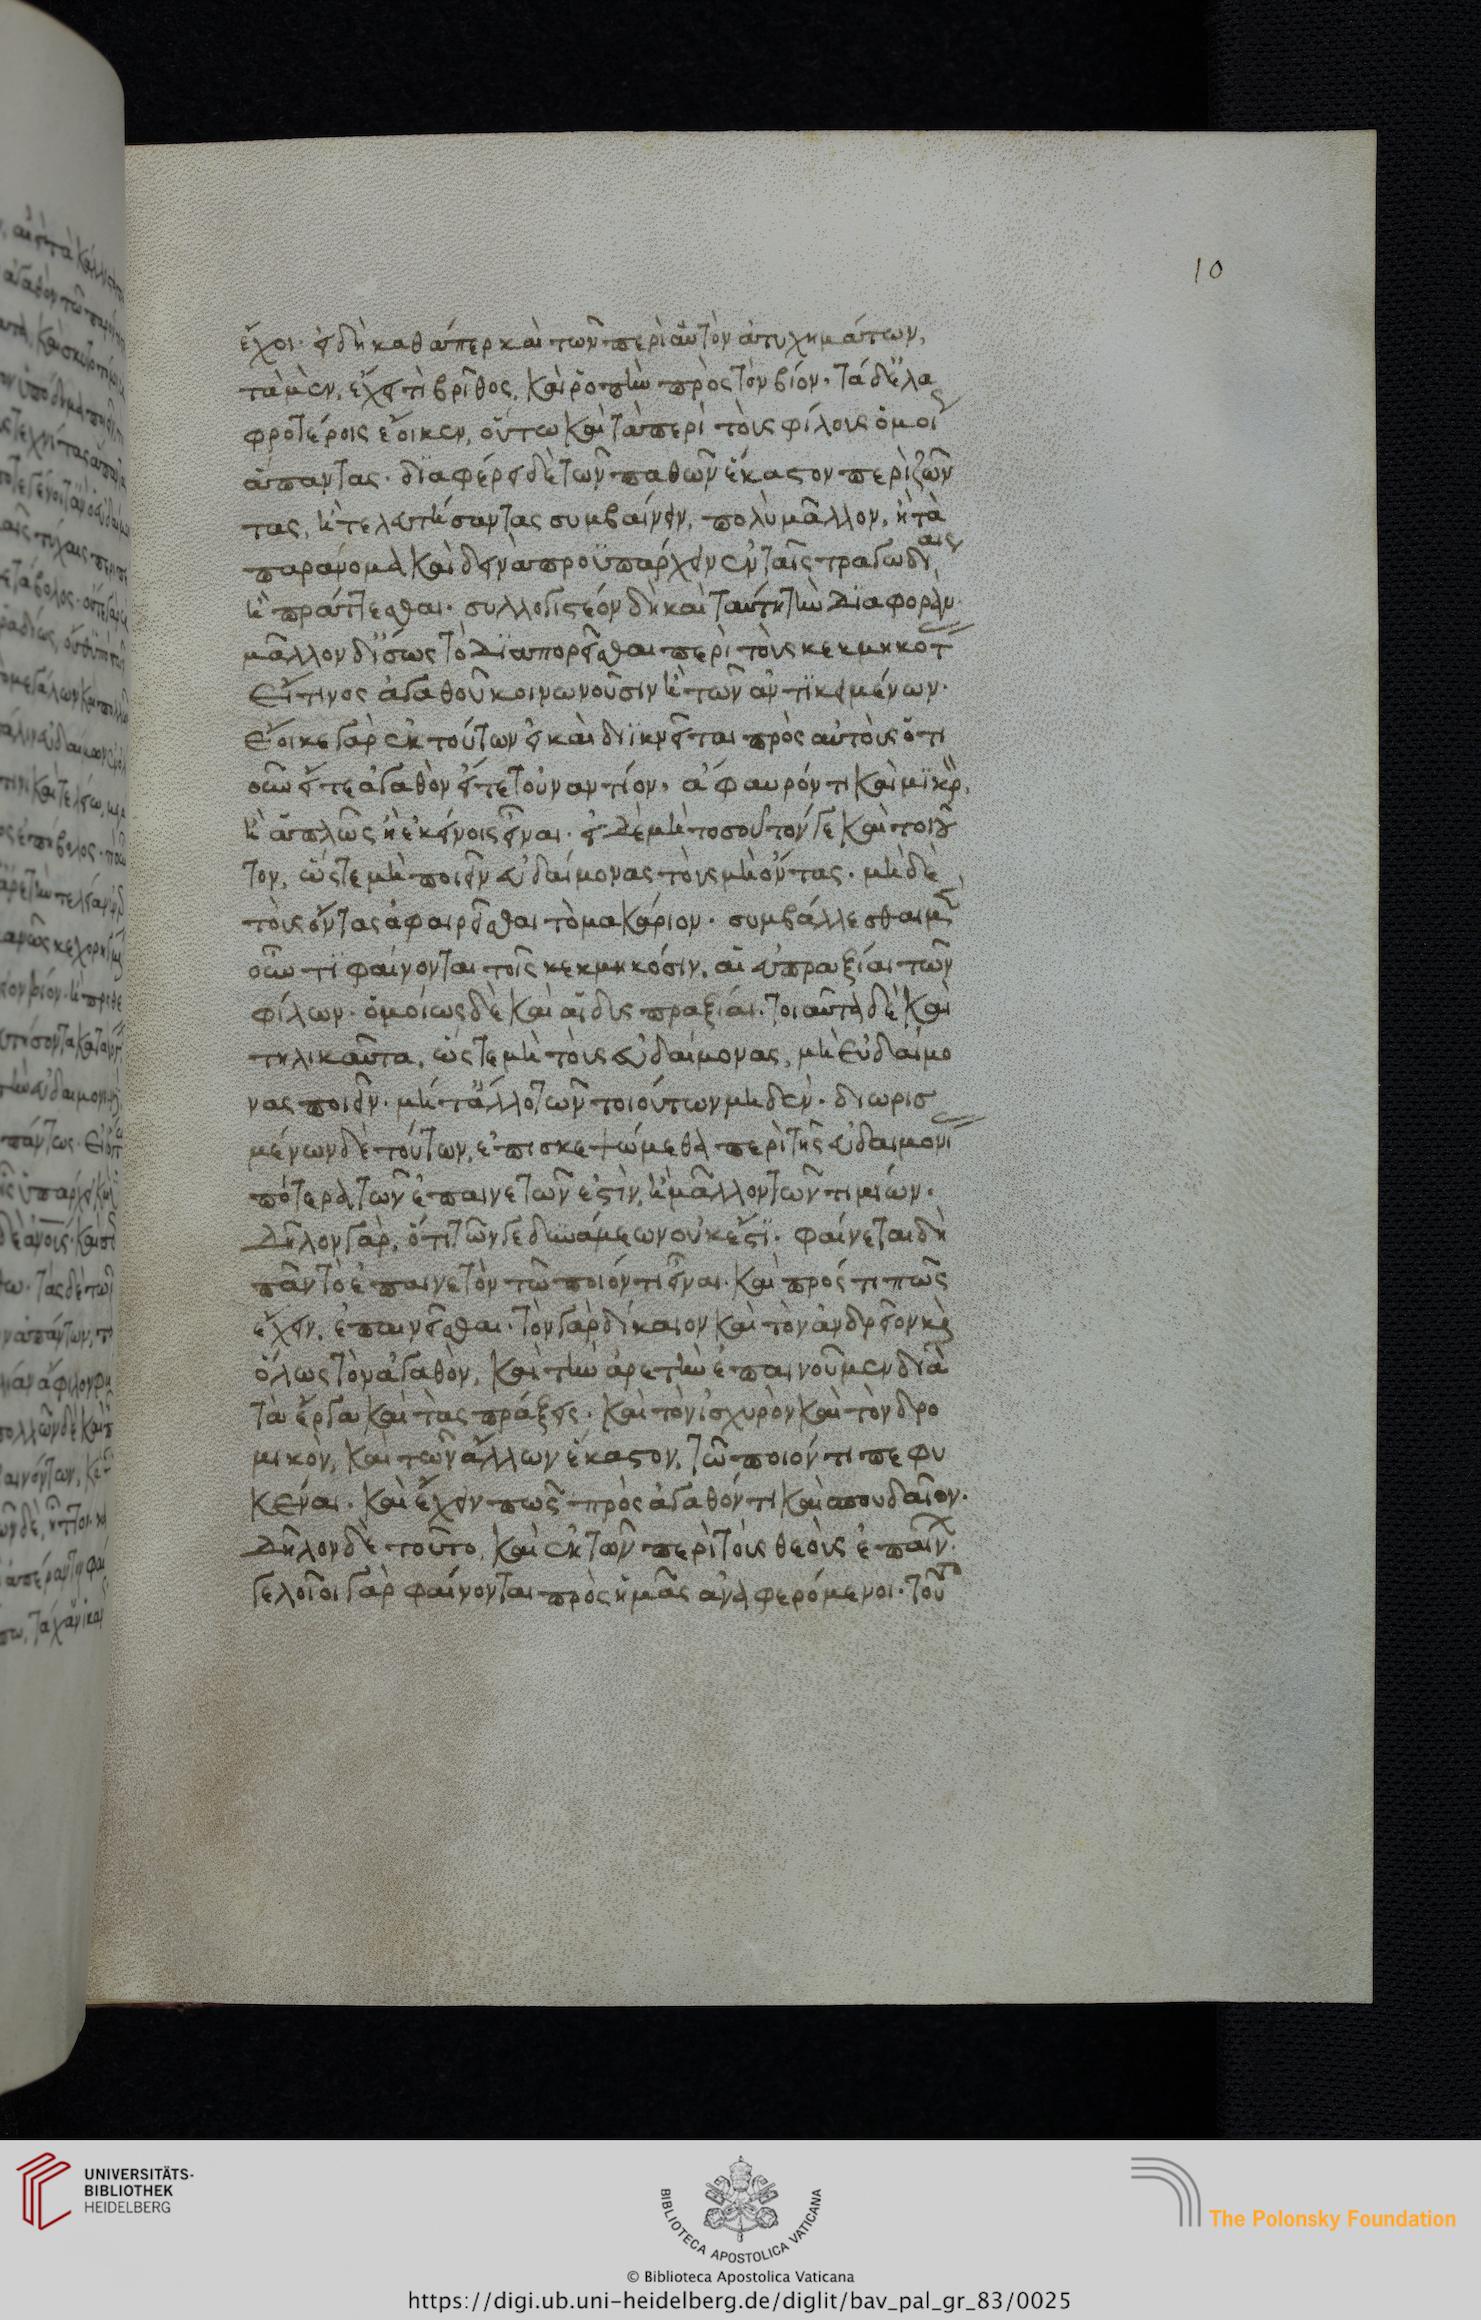 10
ἔχοι· εἰ δὴ καθάπερ καὶ τῶν περὶ αὑτὸν ἀτυχημάτων,
τὰ μὲν, ἔχει τὶ βρῖθος, καὶ ῥοπὴν πρὸς τὸν βίον· τὰ δ' ἐλα
φροτέροις ἔοικεν, οὕτω καὶ τὰ περὶ τοὺς φίλους ὁμοί
ἅπαντας· διαφέρει δὲ τῶν παθῶν ἕκαστον περὶ ζῶν
τας, ἢ τελευτήσαντας συμβαίνειν, πολὺ μᾶλλον, ἢ τὰ
παράνομα καὶ δεινὰ προϋπάρχειν ἐν ταῖς τραγωδίαις
ἢ πράττεσθαι· συλλογιστέον δὴ καὶ ταύτη τὴν διαφοράν·
μᾶλλον δ' ἴσως τὸ διαπορεῖσθαι περὶ τοὺς κεκμηκότ
εἴ τινος ἀγαθοῦ κοινωνοῦσιν ἢ τῶν ἀντικειμένων·
ἔοικε γὰρ ἐκ τούτων εἰ καὶ διϊκνεῖται πρὸς αὐτοὺς ὁτι
οῦν εἴτε ἀγαθὸν εἴτε τοὐναντίον, ἀφαυρόν τι καὶ μικρὸ,
ἢ ἁπλῶς ἢ ἐκείνοις εἶναι· εἰ δὲ μὴ τοσοῦτόν γε καὶ τοιοῦ
τον, ὥστε μὴ ποιεῖν εὐδαίμονας τοὺς μὴ ὄντας· μὴ δὲ
τοὺς ὄντας ἀφαιρεῖσθαι τὸ μακάριον· συμβάλλεσθαι μὲν
οῦν τὶ φαίνονται τοῖς κεκμηκόσιν, αἱ εὐπραξίαι τῶν
φίλων· ὁμοίως δὲ καὶ αἱ δυς πραξίαι· τοιαῦτα δὲ καὶ
τηλικαῦτα, ὥστε μὴ τοὺς εὐδαίμονας, μὴ εὐδαίμο
νας ποιεῖν· μήτ' ἄλλο τῶν τοιούτων μηδέν· διωρισ
μένων δὲ τούτων, ἐπισκεψώμεθα περὶ τῆς εὐδαιμονί
πότερα τῶν ἐπαινετῶν ἐστὶν, ἢ μᾶλλον τῶν τιμίων·
δῆλον γὰρ, ὅτι τῶν γε δυνάμεων οὐκ ἔστι· φαίνεται δὴ
πᾶν τὸ ἐπαινετὸν τῶ ποιόν τι εἶναι· καὶ πρός τι πῶς
ἔχειν, ἐπαινεῖσθαι· τὸν γὰρ δίκαιον καὶ τὸν ἀνδρεῖον καὶ
ὅλως τὸν ἀγαθὸν, καὶ τὴν ἀρετὴν ἐπαινοῦμεν διὰ
τὰ ἔργα καὶ τὰς πράξεις· καὶ τὸν ἰσχυρὸν καὶ τὸν δρο
μικὸν, καὶ τῶν ἄλλων ἕκαστον, τῶ ποιόν τι πεφυ
κέναι· καὶ ἔχειν πως πρὸς ἀγαθόν τι καὶ σπουδαῖον·
δῆλον δὲ τοῦτο, καὶ ἐκ τῶν περὶ τοὺς θεοὺς ἐπαίνων·
γελοῖοι γὰρ φαίνονται πρὸς ἡμᾶς ἀναφερόμενοι· τοῦτο
UNIVERSITÄTS-
BIBLIOTHEK
HEIDELBERG
BIBLIOTECA APOSTOLICA VATICANA
The Polonsky Foundation
© Biblioteca Apostolica Vaticana
https://digi.ub.uni-heidelberg.de/diglit/bav_pal_gr_83/0025